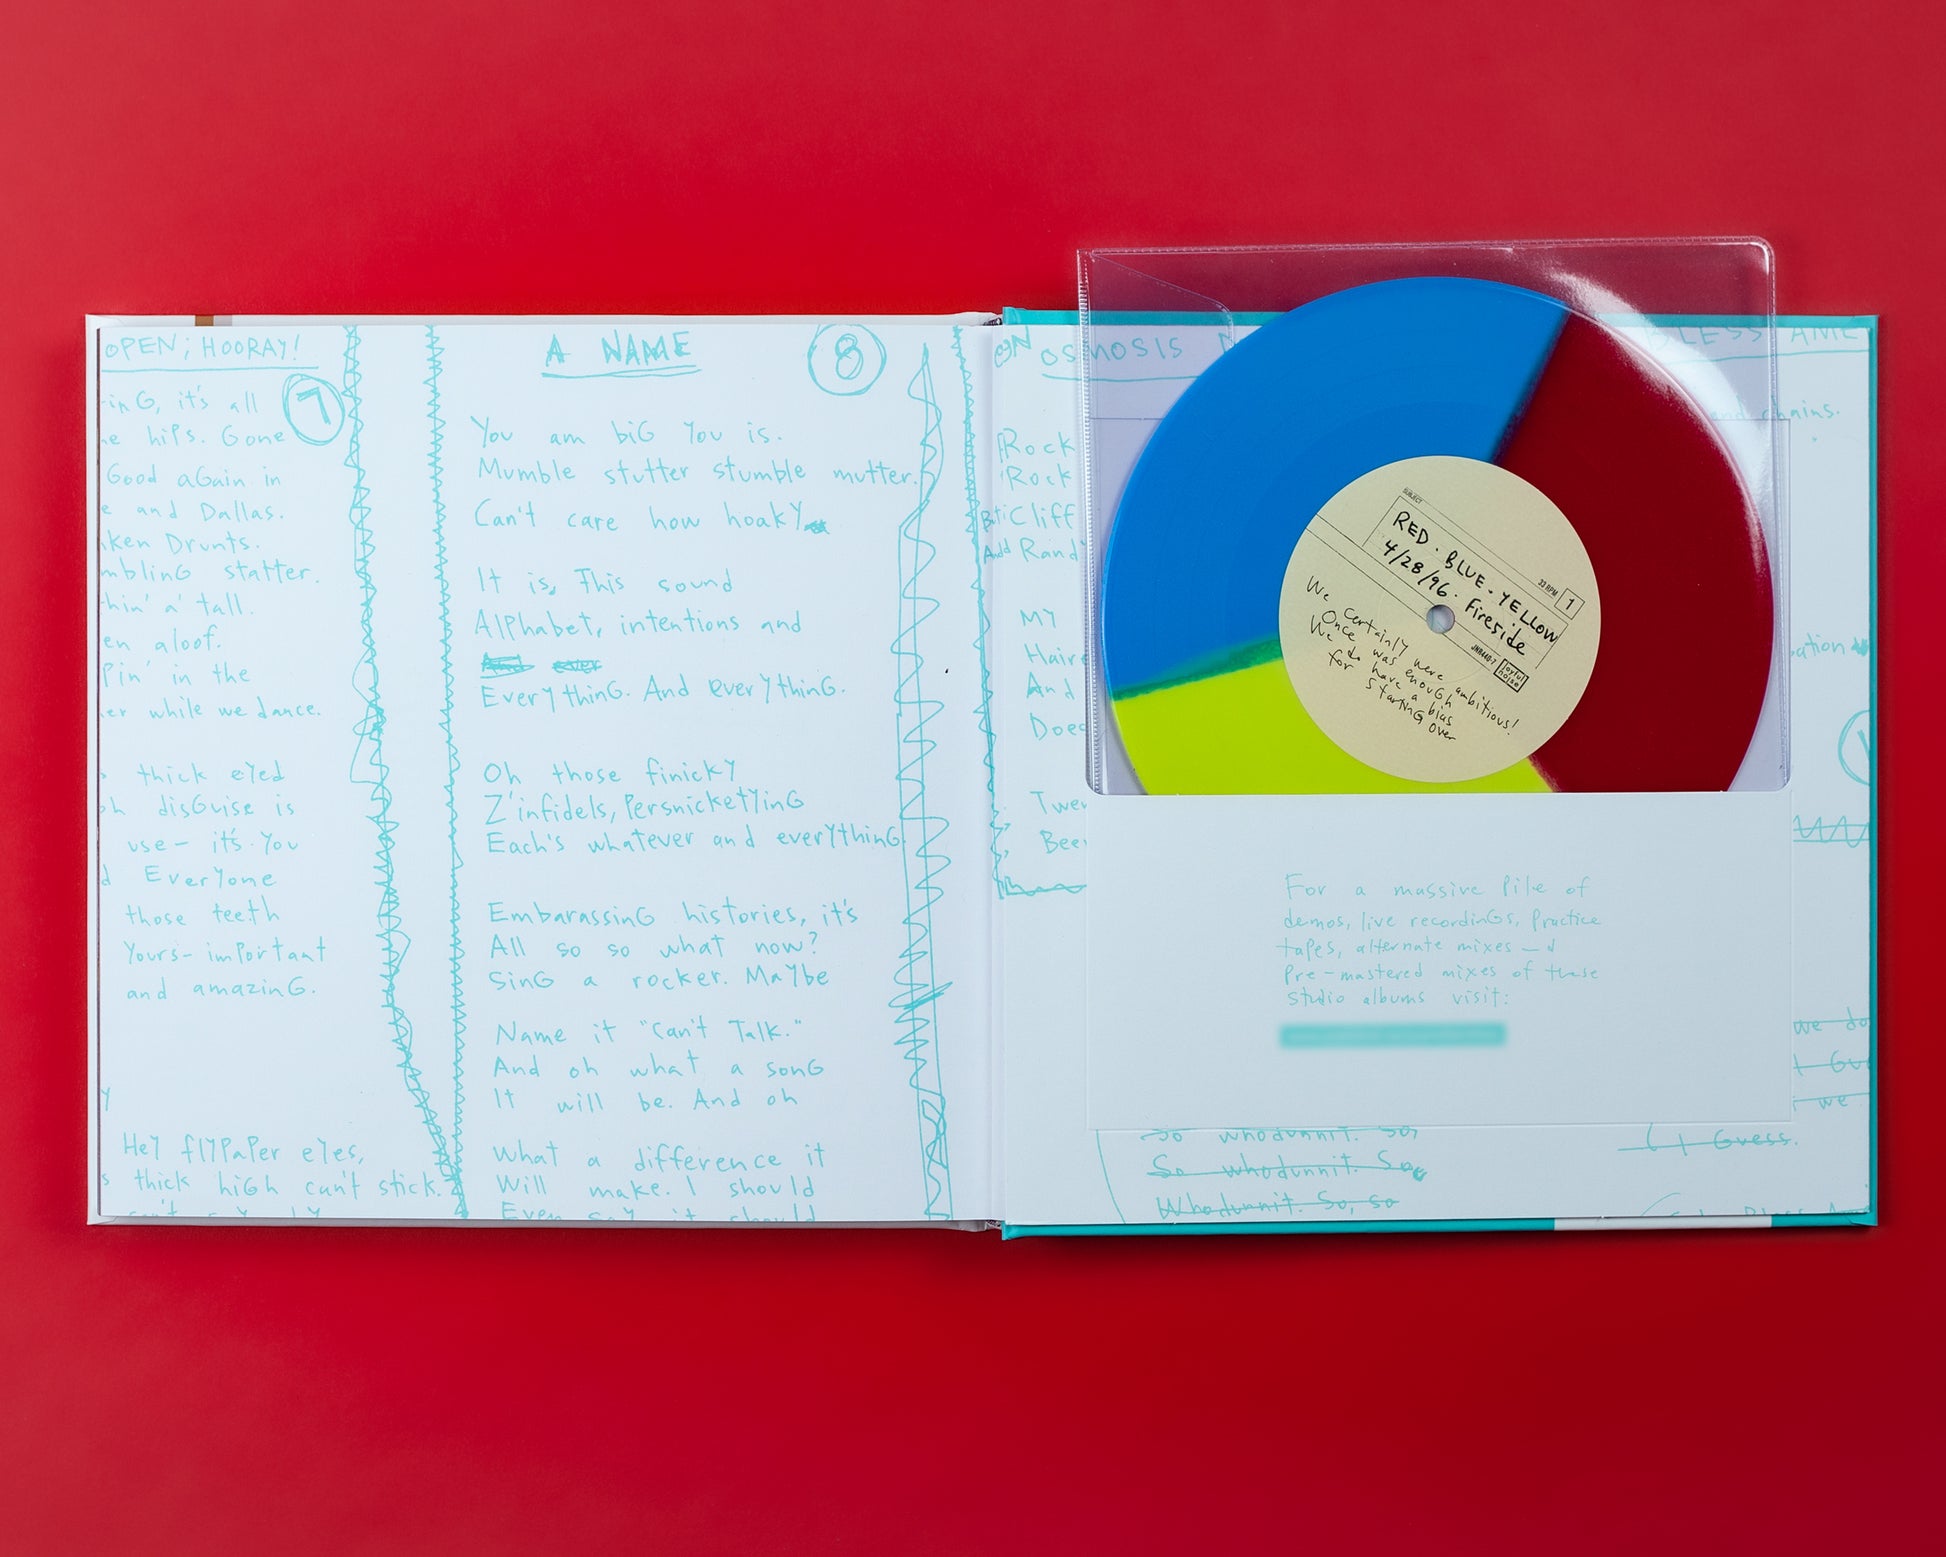 OPEN; HOORAY!
7
it's all
hips. Gone
Good aGain in
and Dallas.
Drunts.
statter.
a' tall.
aloof.
in the
while we dance.
thick eyed
disGuise is
use- it's. You
Everyone
those teeth
Yours- important
and amazinG.
Hey flypaper eyes,
thick hiGh can't stick.
A NAME
8
You am biG You is.
Mumble stutter stumble mutter.
Can't care how hoaky
It is, This sound
Alphabet, intentions and
EverythinG. And everythinG.
Oh those finicky
Z'infidels, PersnicketyinG
Each's whatever and everythinG
EmbarassinG histories, it's
All so so what now?
SinG a rocker. Maybe
Name it "Can't Talk."
And oh what a sonG
It will be. And oh
What a difference it
Will make. I should
Even say it should
OSMOSIS
BLESS AME
and chains.
Rock
Rock
But Cliff
And Rand
MY
Haire
And
Does
Twer
Bee
SUBJECT
RED . BLUE . YELLOW
4/28/96. Fireside
33 RPM
1
JNR440-7
joyful noise
We Certainly were ambitious!
Once was enouGh
We do have a bias
for StartinG Over
For a massive pile of
demos, live recordinGs, practice
tapes, alternate mixes - &
Pre-mastered mixes of these
studio albums visit:
we do
we
So whodunnit. So,
So whodunnit. So,
Whodunnit. So, so
Guess.